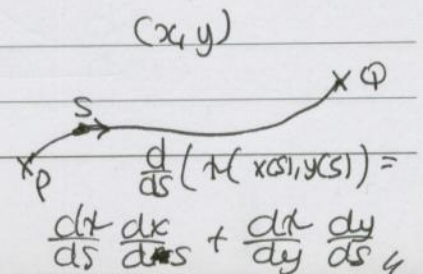 (x, y)
S
Q
P
d/ds (x( x(s), y(s)) =
dx/ds dx/ds + dx/dy dy/ds